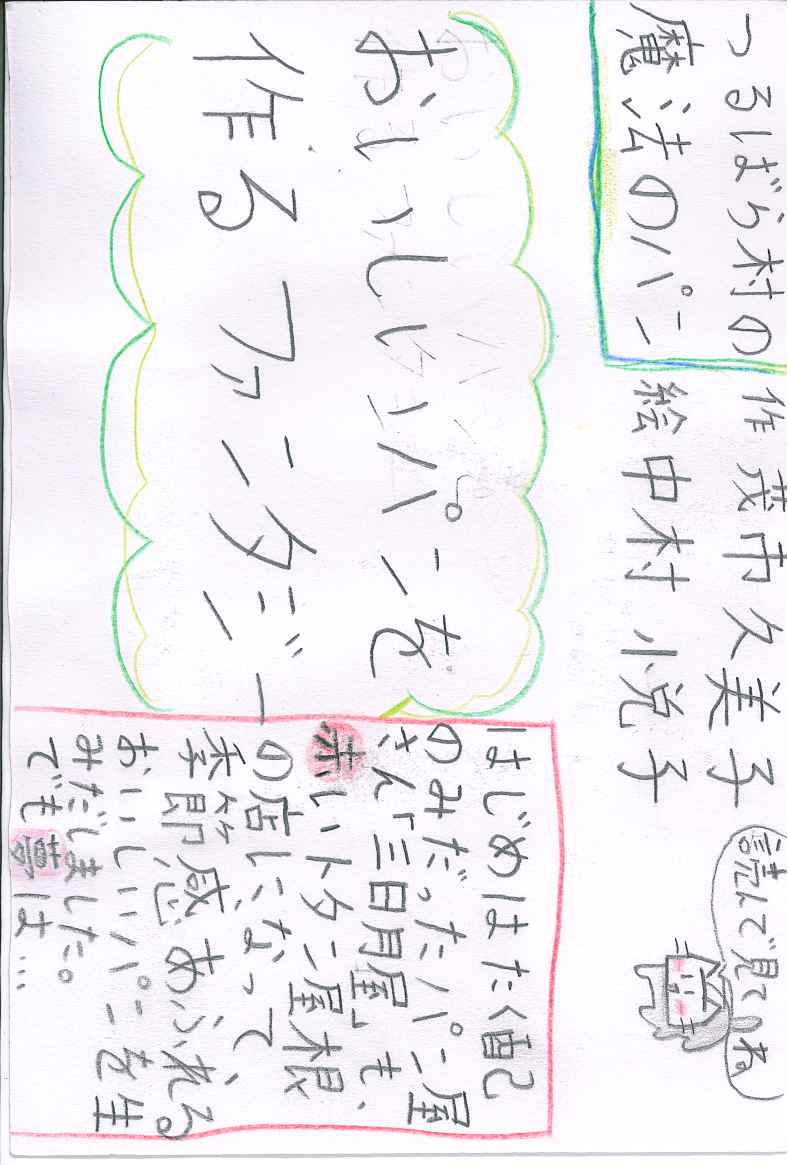 つるばら村の
魔法のパン
作 茂市久美子
絵 中村 悦子
読んで見てね
おいしいパンを
作るファンタジー
はじめはたく配
のみだったパン屋
さん「三日月屋」も、
赤いトタン屋根
の店になって、
季節感あふれる
おいしいパンを生
みだしました。
でも夢は…